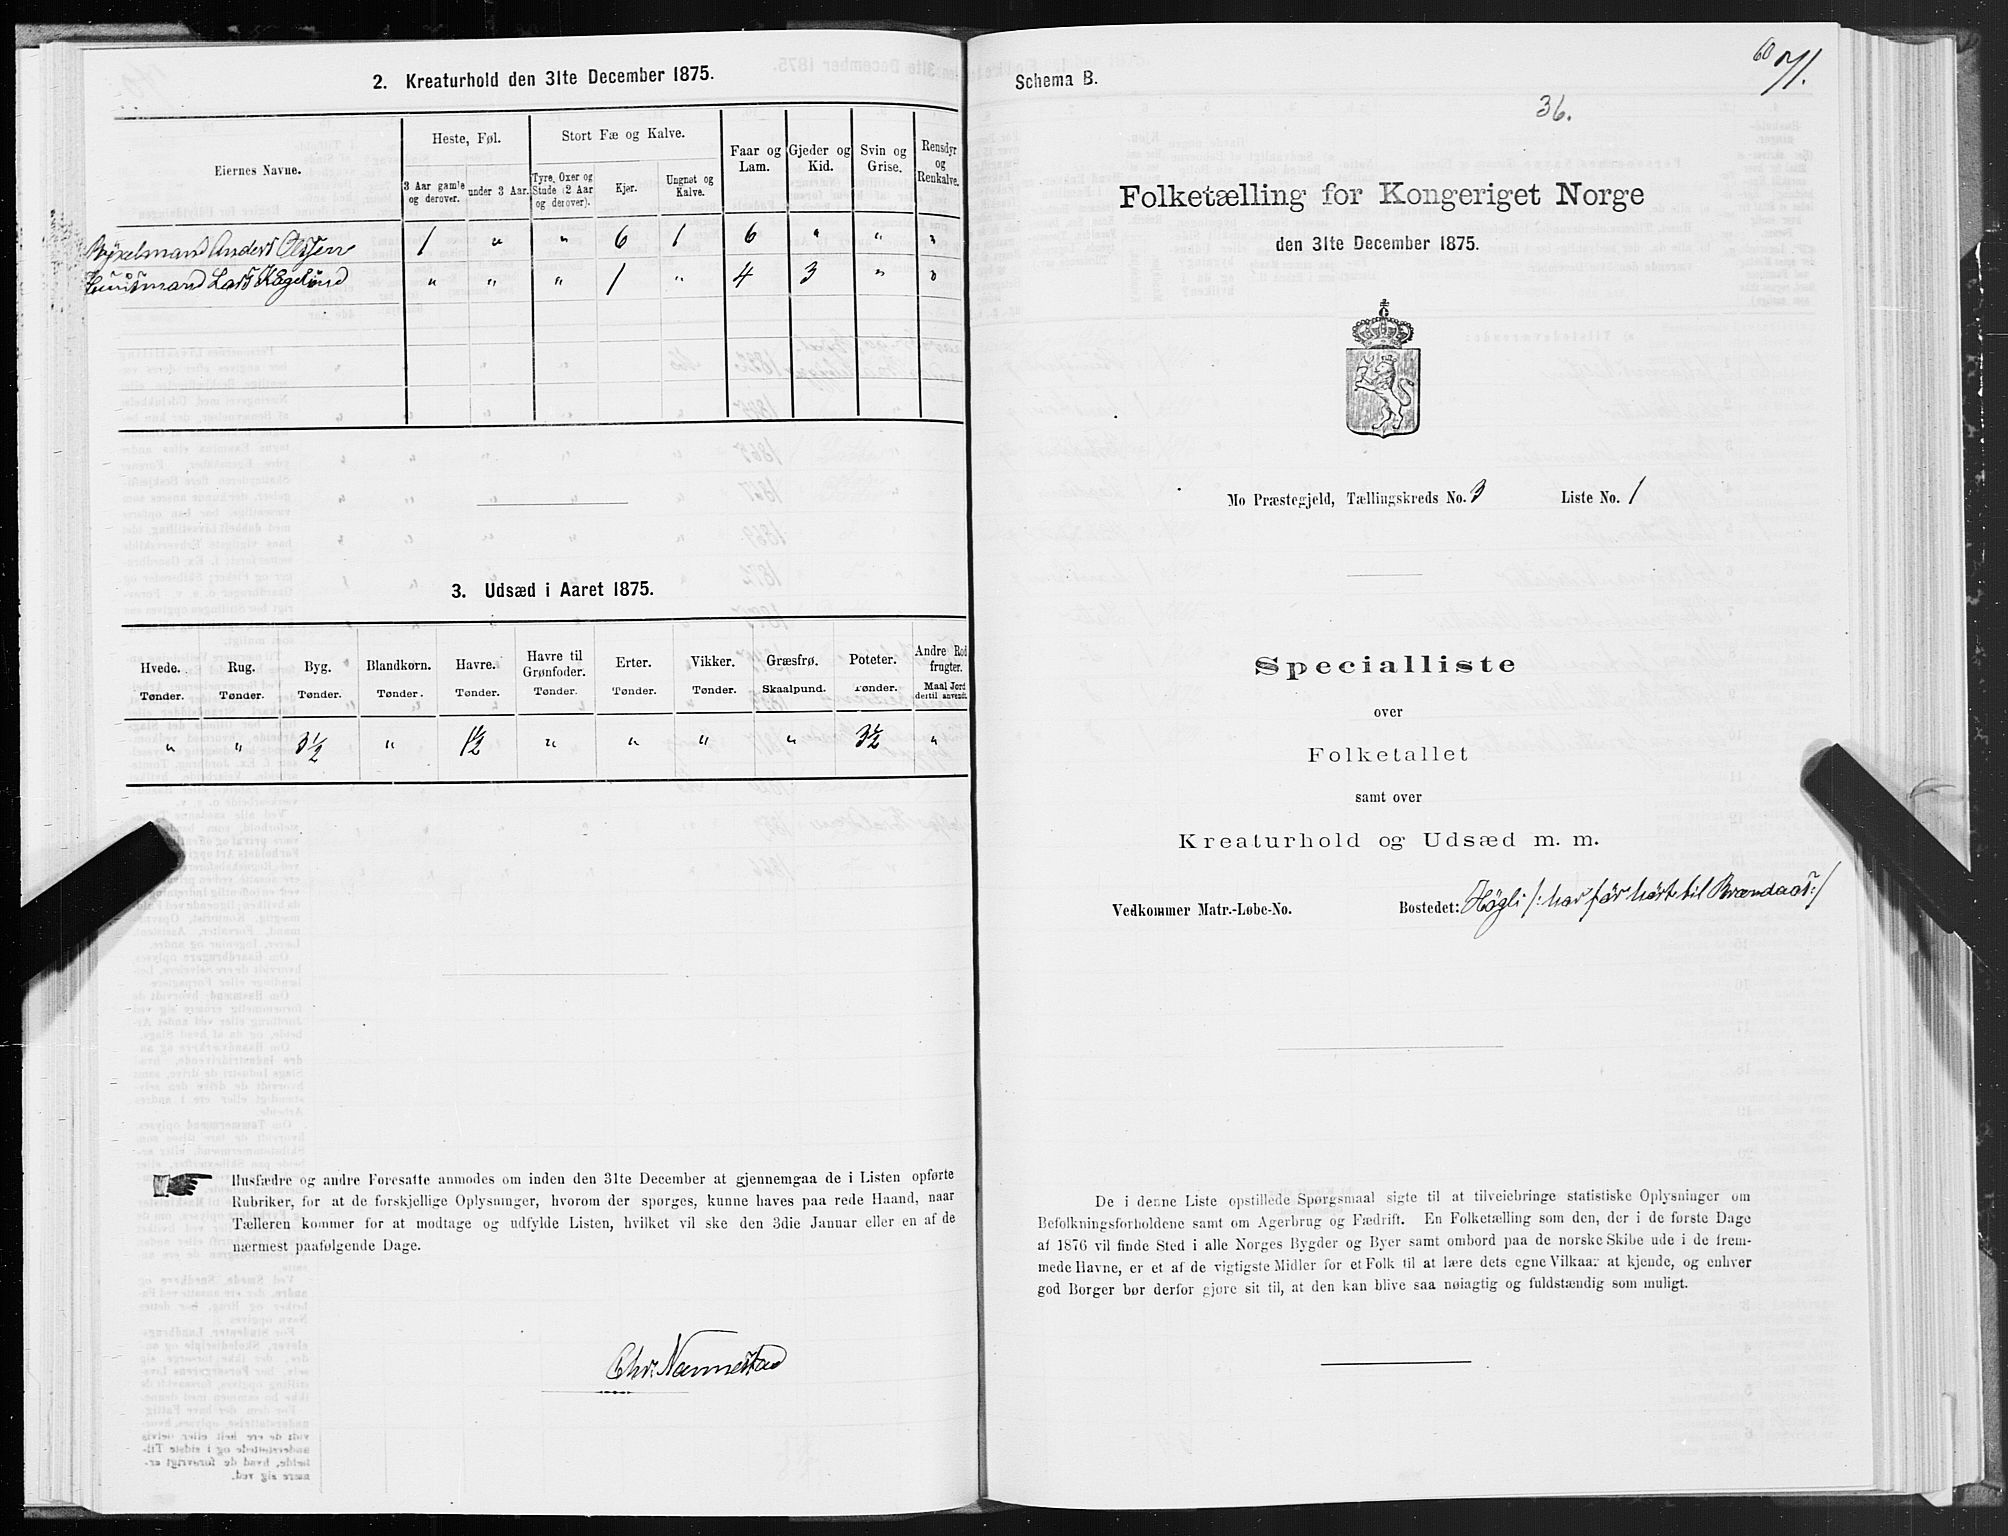 2. Kreaturhold den 31te December 1875.
Eiernes Navne.
Heste, Føl.
Stort Fæ og Kalve.
Faar og Lam.
Gjeder og Kid.
Svin og Grise.
Rensdyr og Renkalve.
3 Aar gamle og derover.
under 3 Aar.
Tyre, Oxer og Stude (2 Aar og derover).
Kjør.
Ungnøt og Kalve.
Bÿxelmand Anders Olsen 1 " " 6 1 6 " " "
Huusmand Lars " " " 1 " 4 3 " "
3. Udsæd i Aaret 1875.
Hvede. Rug. Byg. Blandkorn. Havre. Havre til Grønfoder. Erter. Vikker. Græsfrø. Poteter. Andre Rodfrugter.
Tønder. Tønder. Tønder. Tønder. Tønder. Tønder. Tønder. Tønder. Skaalpund. Tønder. Maal Jord dertil anvendt.
" " 3½ " 1½ " " " " 3½ "
Husfædre og andre Foresatte anmodes om inden den 31te December at gjennemgaa de i Listen opførte
Rubriker, for at de forskjellige Oplysninger, hvorom der spørges, kunne haves paa rede Haand, naar
Tælleren kommer for at modtage og udfylde Listen, hvilket vil ske den 3die Januar eller en af de
nærmest paafølgende Dage.
Chr. Nannestad
60
71.
Schema B.
36.
Folketælling for Kongeriget Norge
den 31te December 1875.
Mo Præstegjeld, Tællingskreds No. 3 Liste No. 1
Specialliste
over
Folketallet
samt over
Kreaturhold og Udsæd m. m.
Vedkommer Matr.-Løbe-No. Bostedet: Høgli /: har før hørt til Brændaas :/
De i denne Liste opstillede Spørgsmaal sigte til at tilveiebringe statistiske Oplysninger om
Befolkningsforholdene samt om Agerbrug og Fædrift. En Folketælling som den, der i de første Dage
af 1876 vil finde Sted i alle Norges Bygder og Byer samt ombord paa de norske Skibe ude i de frem-
mede Havne, er et af de vigtigste Midler for et Folk til at lære dets egne Vilkaar at kjende, og enhver
god Borger bør derfor gjøre sit til, at den kan blive saa nøiagtig og fuldstændig som muligt.